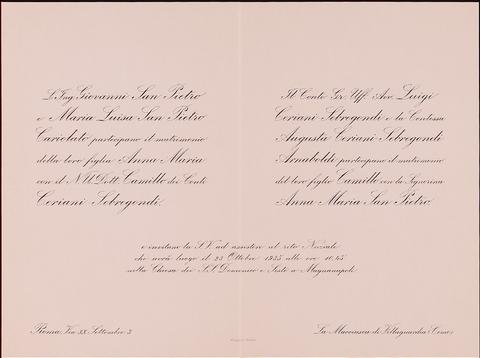 L'Ing. Giovanni San Pietro
e Maria Luisa San Pietro
Cariolato partecipano il matrimonio
della loro figlia Anna Maria
con il N.U. Dott. Camillo dei Conti
Ceriani Sebregondi.
Il Conte Gr. Uff. Avv. Luigi
Ceriani Sebregondi e la Contessa
Augusta Ceriani Sebregondi
Arnaboldi partecipano il matrimonio
del loro figlio Camillo con la Signorina
Anna Maria San Pietro.
e invitano la S.V. ad assistere al rito Nuziale
che avrà luogo il 23 Ottobre 1935 alle ore 10,45
nella Chiesa dei S.S. Domenico e Sisto a Magnanapoli
Roma, Via XX Settembre 3
La Mocciasca di Villaguardia (Como)